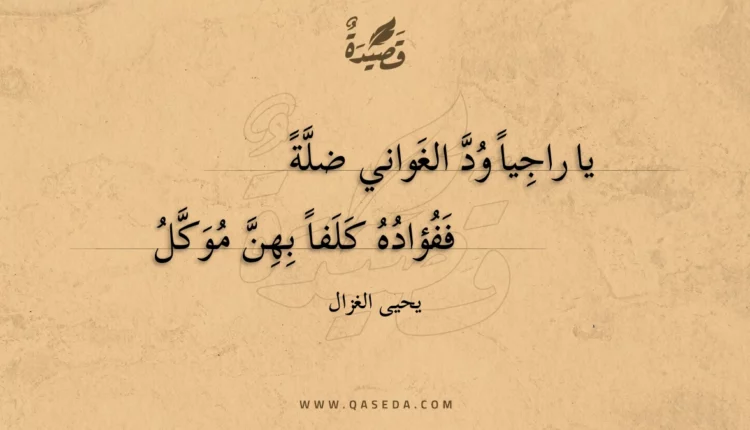 قَصِيْدَةٌ
يا راجِياً وُدَّ الغَواني ضلَّةً
فَفُؤادُهُ كَلَفاً بِهِنَّ مُوَكَّلُ
يحيى الغزال
WWW.QASEDA.COM